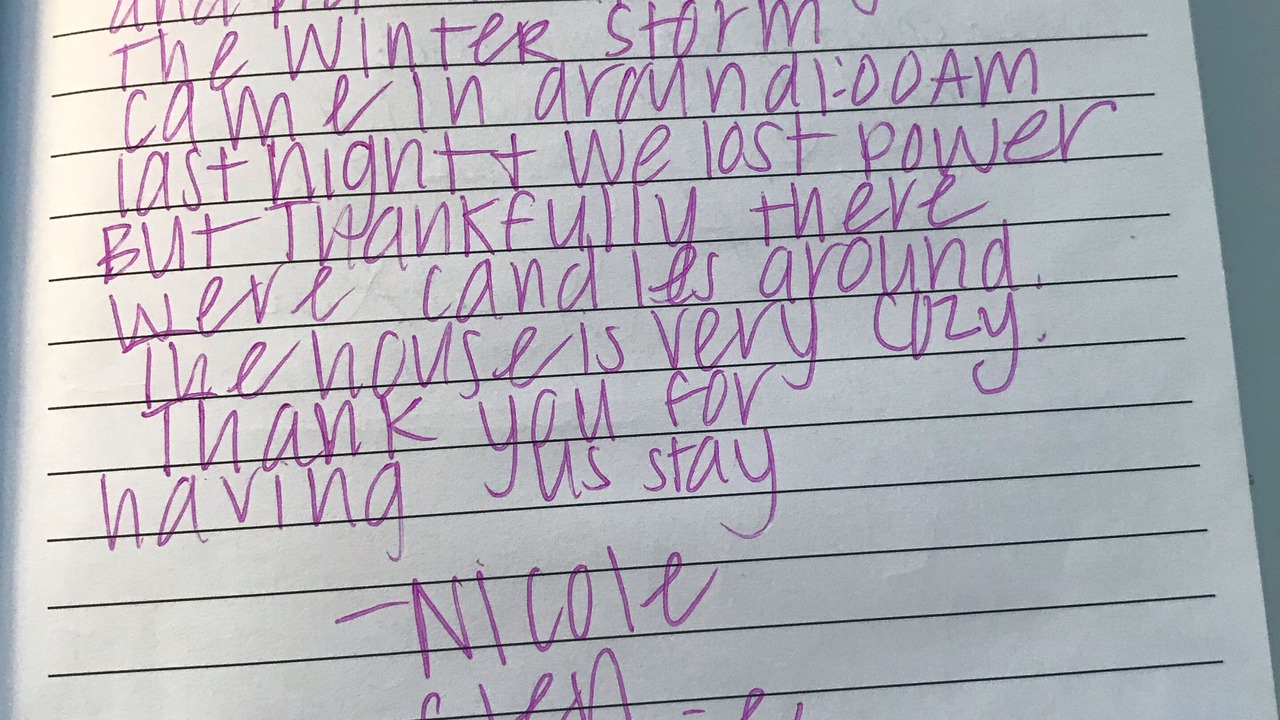 and
The Winter storm
came in around 1:00AM
last night + we lost power
But Thankfully there
were candles around.
The house is very cozy.
Thank you for
having us stay
-Nicole